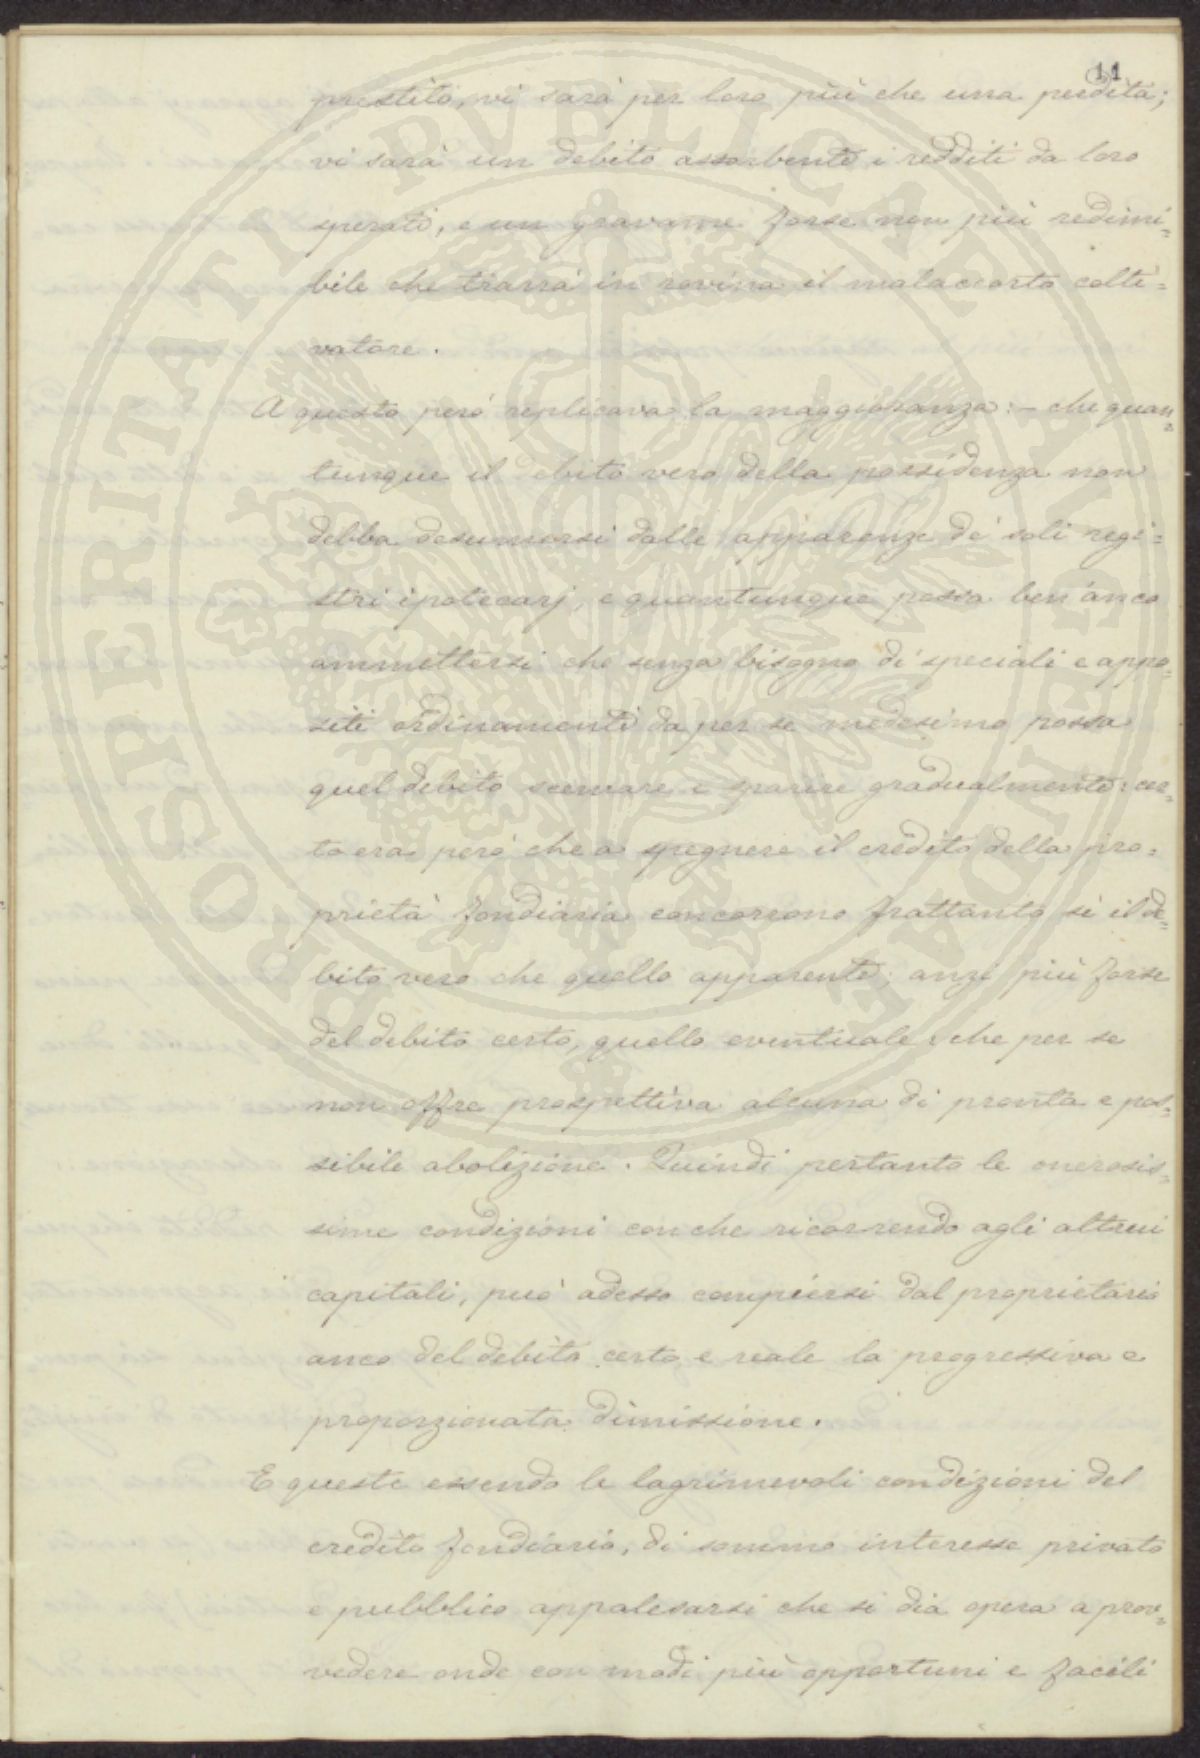 11
prestito, vi sarà per loro più che una perdita;
vi sarà un debito assorbente i redditi da loro
sperati, e un gravame forse non più redimi=
bile che trarrà in rovina il malaccorto colti=
vatore.
A questo però replicava la maggioranza: – che quan=
tunque il debito vero della possidenza non
debba desumersi dalle apparenze de' soli regi=
stri ipotecarj, e quantunque possa ben'anco
ammettersi che senza bisogno di speciali e appo=
siti ordinamenti da per se medesimo possa
quel debito scemare e sparire gradualmente: cer=
to era però che a spegnere il credito della pro=
prietà fondiaria concorrono frattanto sì il de=
bito vero che quello apparente; anzi più forse
del debito certo, quello eventuale che per se
non offre prospettiva alcuna di pronta e pos=
sibile abolizione. Quindi pertanto le onerosis=
sime condizioni con che ricorrendo agli altrui
capitali, può adesso compiersi dal proprietario
anco del debito certo e reale la progressiva e
proporzionata dimissione.
E queste essendo le lagrimevoli condizioni del
credito fondiario, di sommo interesse privato
e pubblico appalesarsi che si dia opera a prov=
vedere onde con modi più opportuni e facili
PROSPERITATI PVBLICAE AVGENDAE